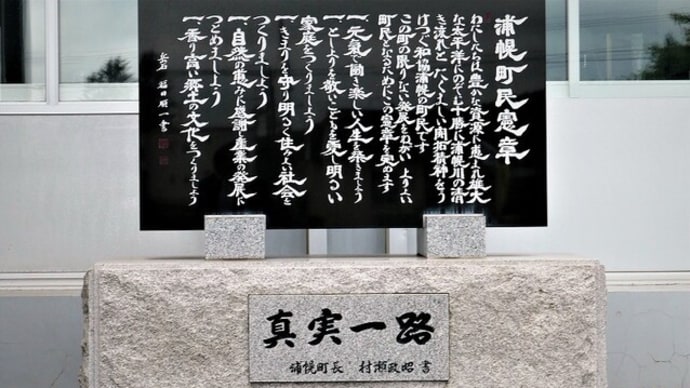 浦幌町民憲章
わたしたちは豊かな資源に恵まれ雄大
な太平洋にのぞむ十勝に浦幌川の清
き流れとたくましい開拓精神をう
けつぐ和協浦幌の町民です
この町の限りない発展をねがいよりよい
町民となるためにこの憲章を定めます
一、元気で働き楽しい人生を築きましよう
一、としよりを敬いこどもを愛し明るい
家庭をつくりましよう
一、きまりを守り明るく住みよい社会を
つくりましよう
一、自然の恵みに感謝し産業の発展に
つとめましよう
一、香り高い郷土の文化をつくりましよう
福田 一書
真実一路
浦幌町長 村瀬政昭 書